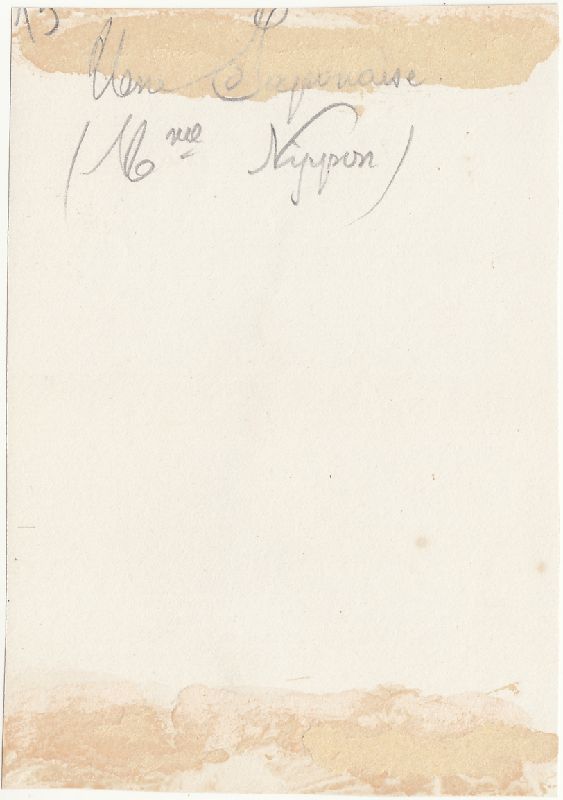 13
Une Japonaise
(Mme Nippon)